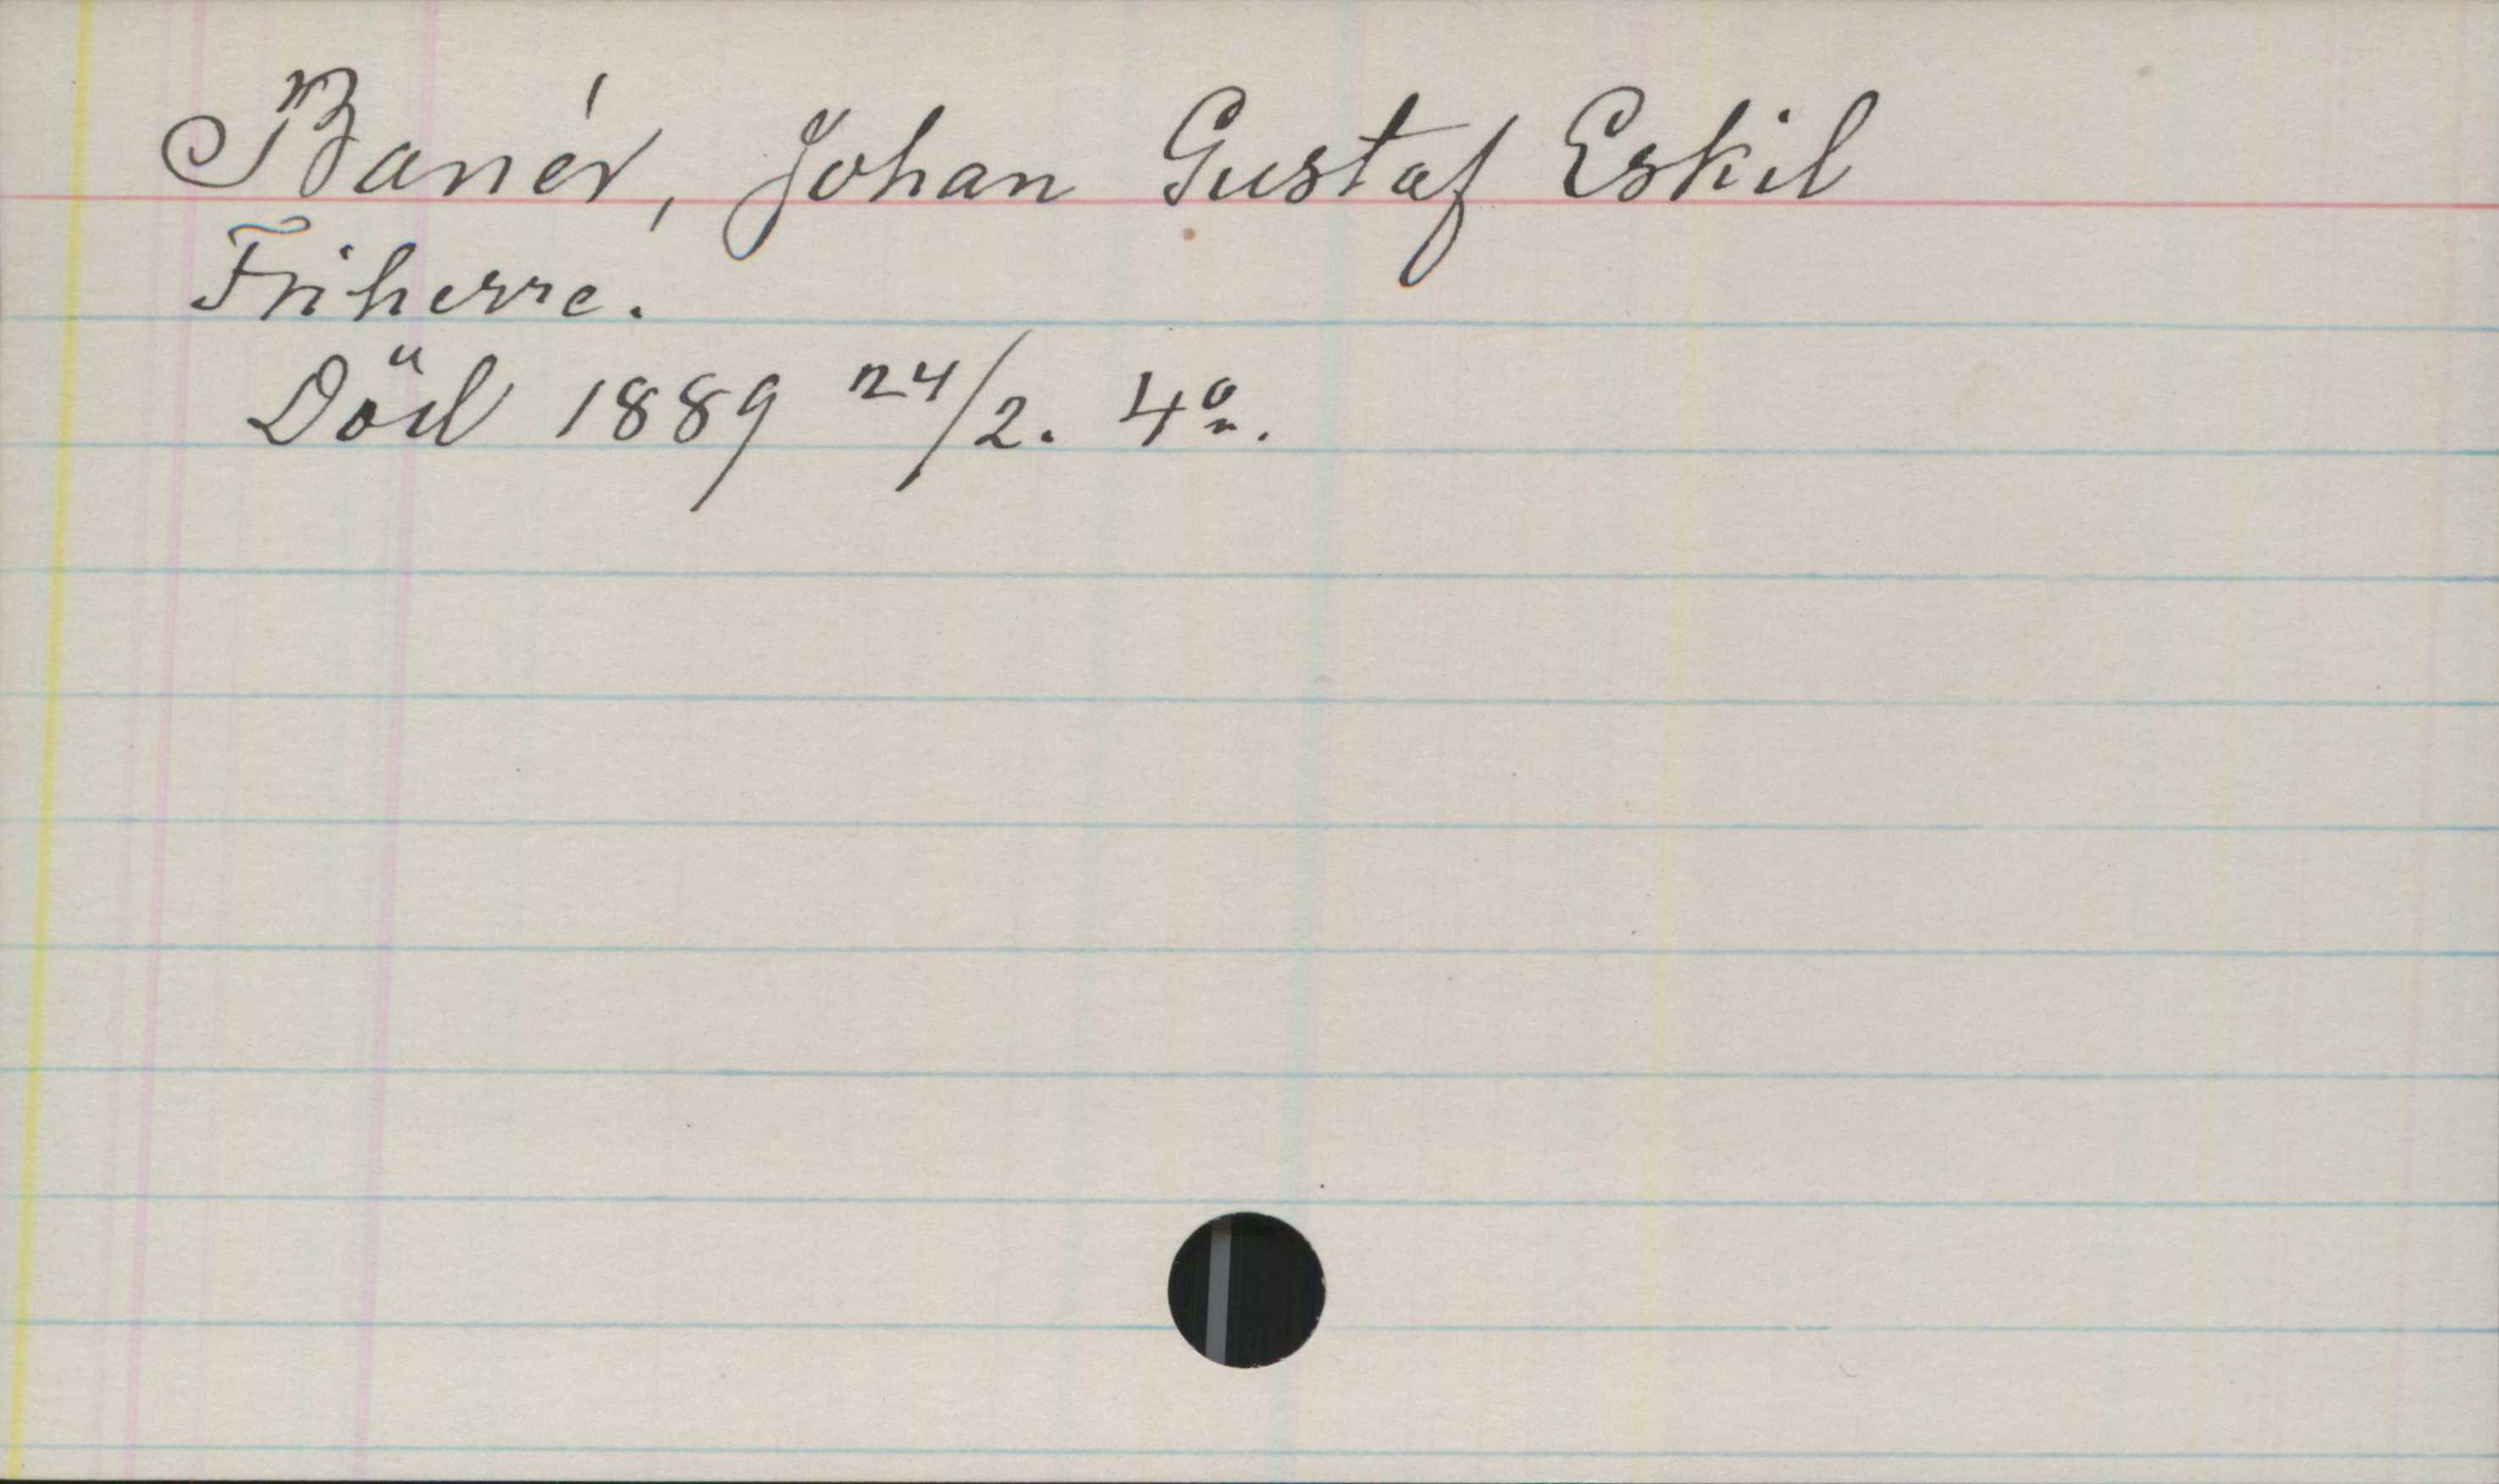 Banér, Johan Gustaf Eskil
Friherre.
Död 1889 24/2. 4º.